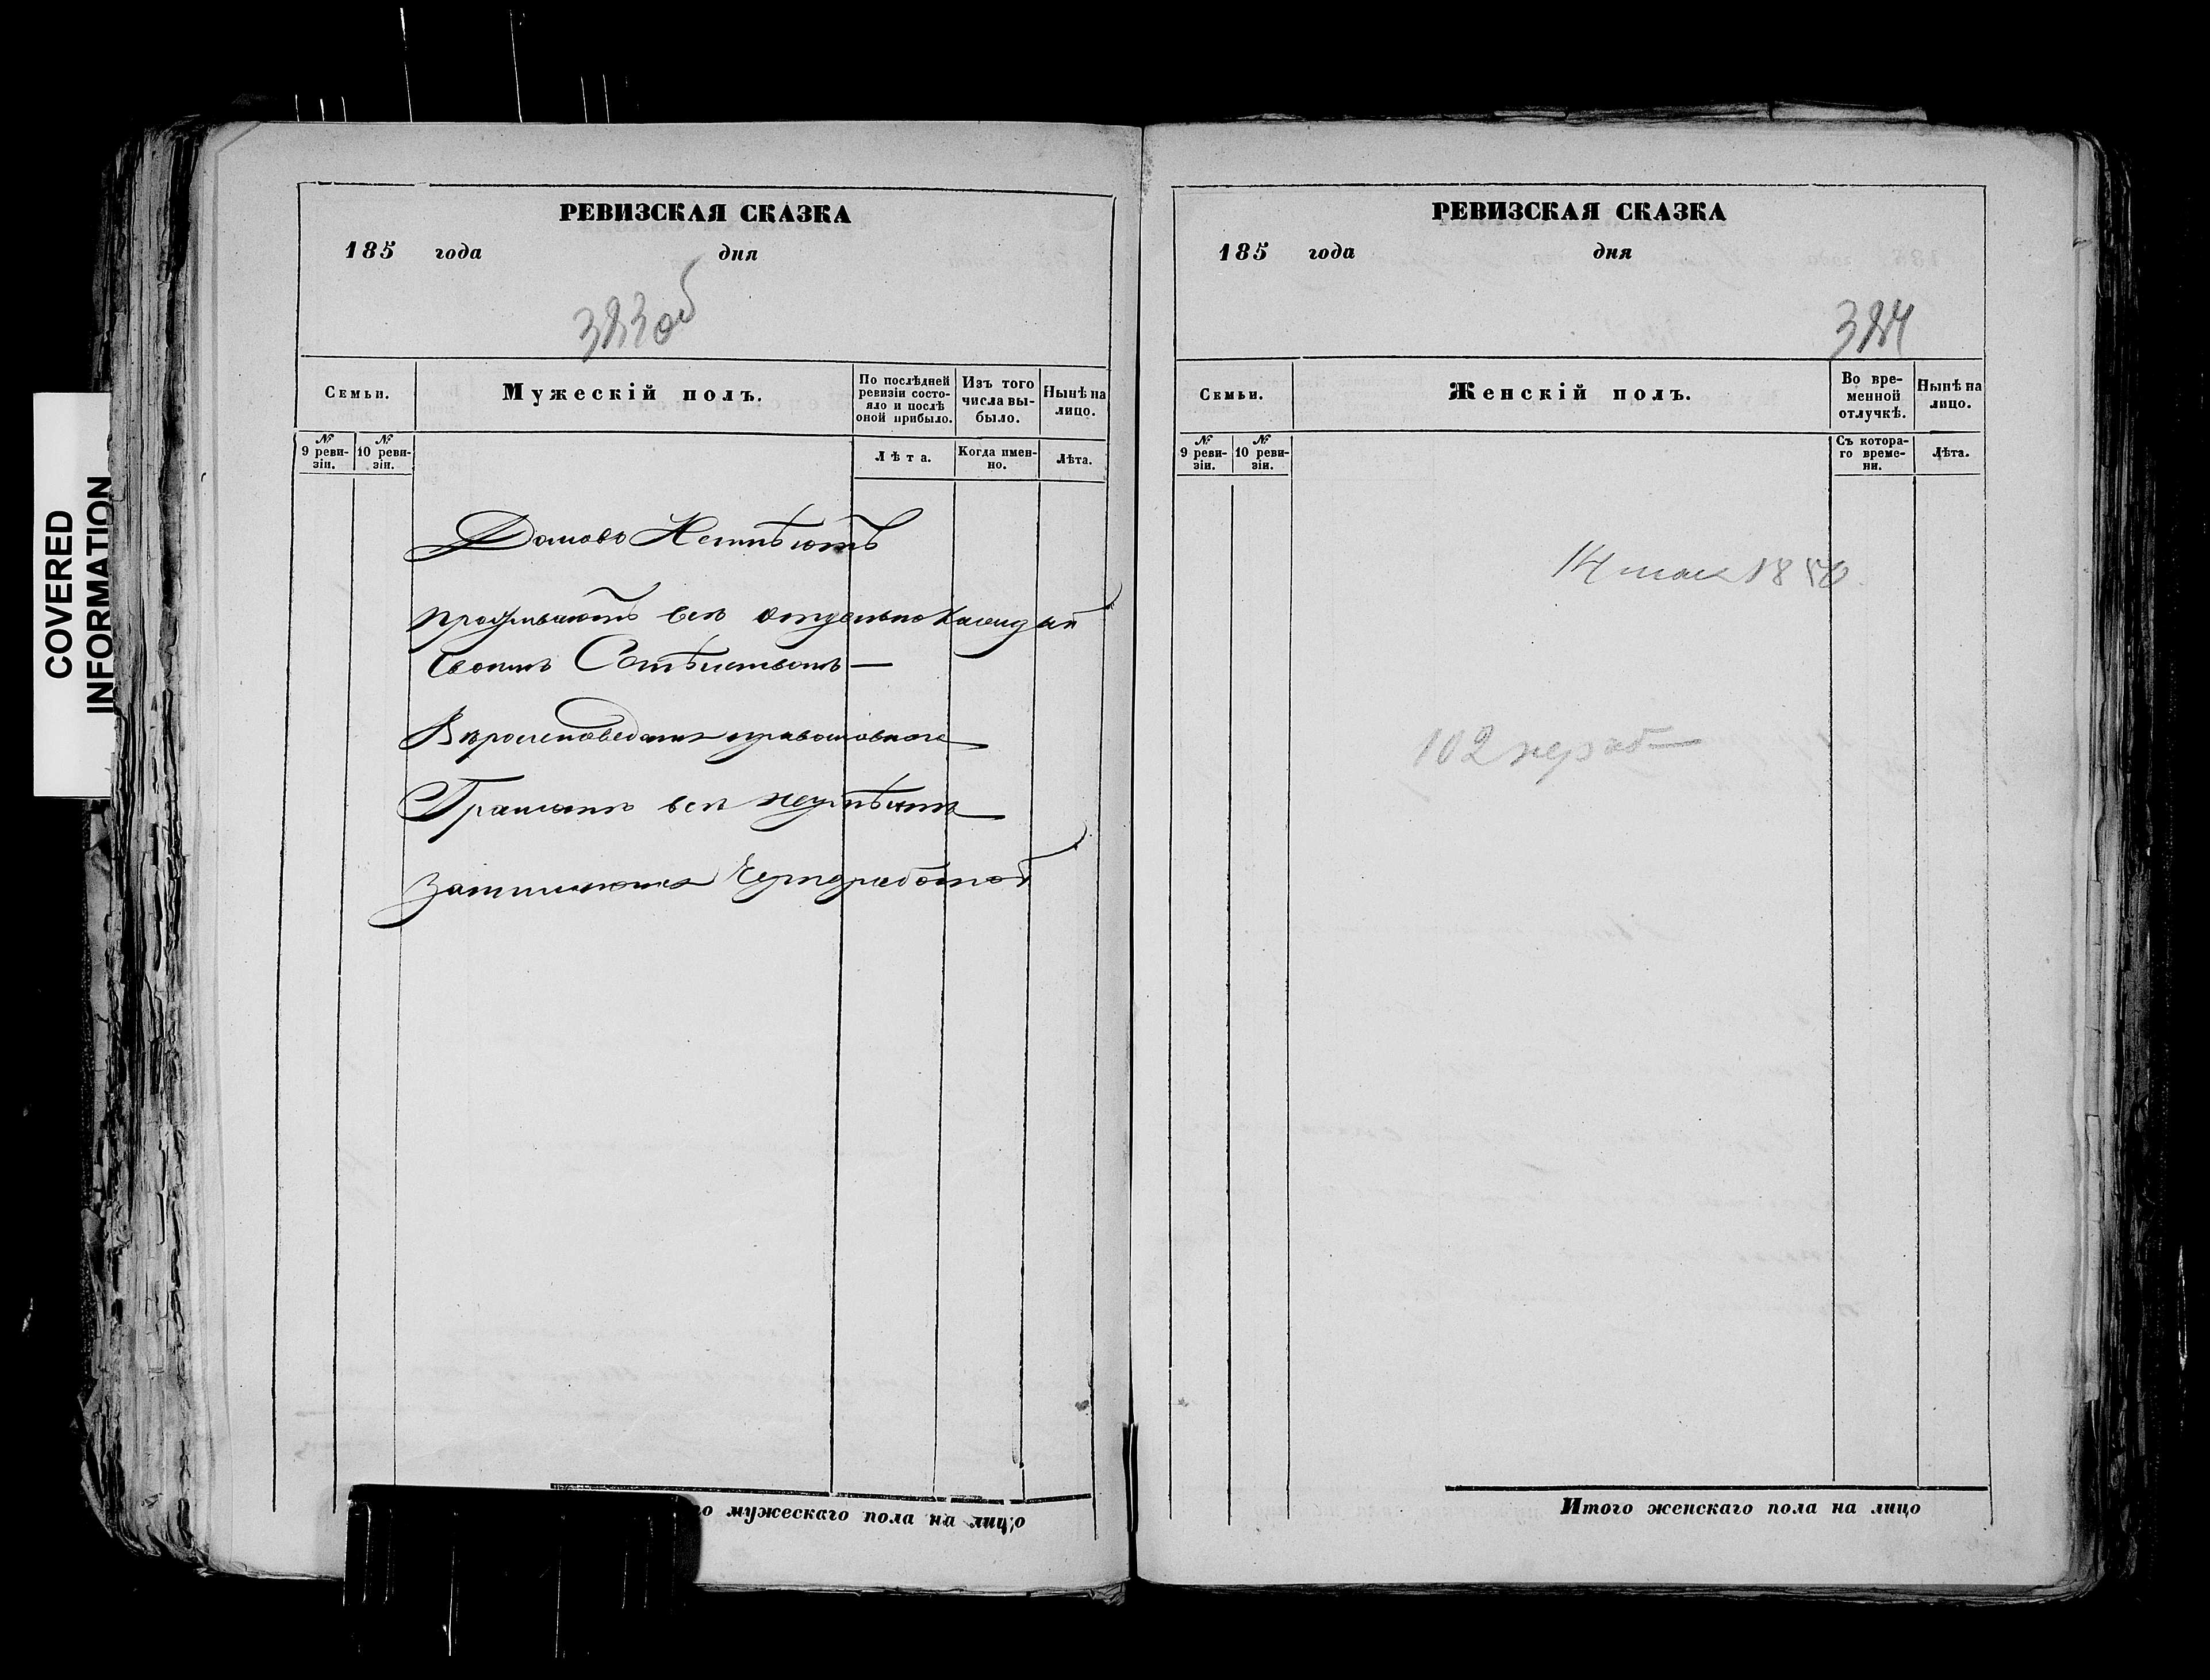 COVERED
INFORMATION
РЕВИЗСКАЯ СКАЗКА
185 года дня
383об
Семьи.
Мужескій полъ.
По послѣдней ревизіи состояло и послѣ оной прибыло.
Изъ того числа выбыло.
Нынѣ на лицо.
№ 9 ревизіи.
№ 10 ревизіи.
Лѣта.
Когда именно.
Лѣта.
Домовъ Неимѣютъ
проживаютъ всѣ отдельно каждый
своимъ Семѣйствомъ —
Вѣроисповеданія православнаго
Грамотѣ всѣ неумѣютъ
Занимаются Черноработой
го мужескаго пола на лицо
РЕВИЗСКАЯ СКАЗКА
185 года дня
384
Семьи.
Женскій полъ.
Во временной отлучкѣ.
Нынѣ на лицо.
№ 9 ревизіи.
№ 10 ревизіи.
Съ котораго времени.
Лѣта.
14 мая 18
102
Итого женскаго пола на лицо